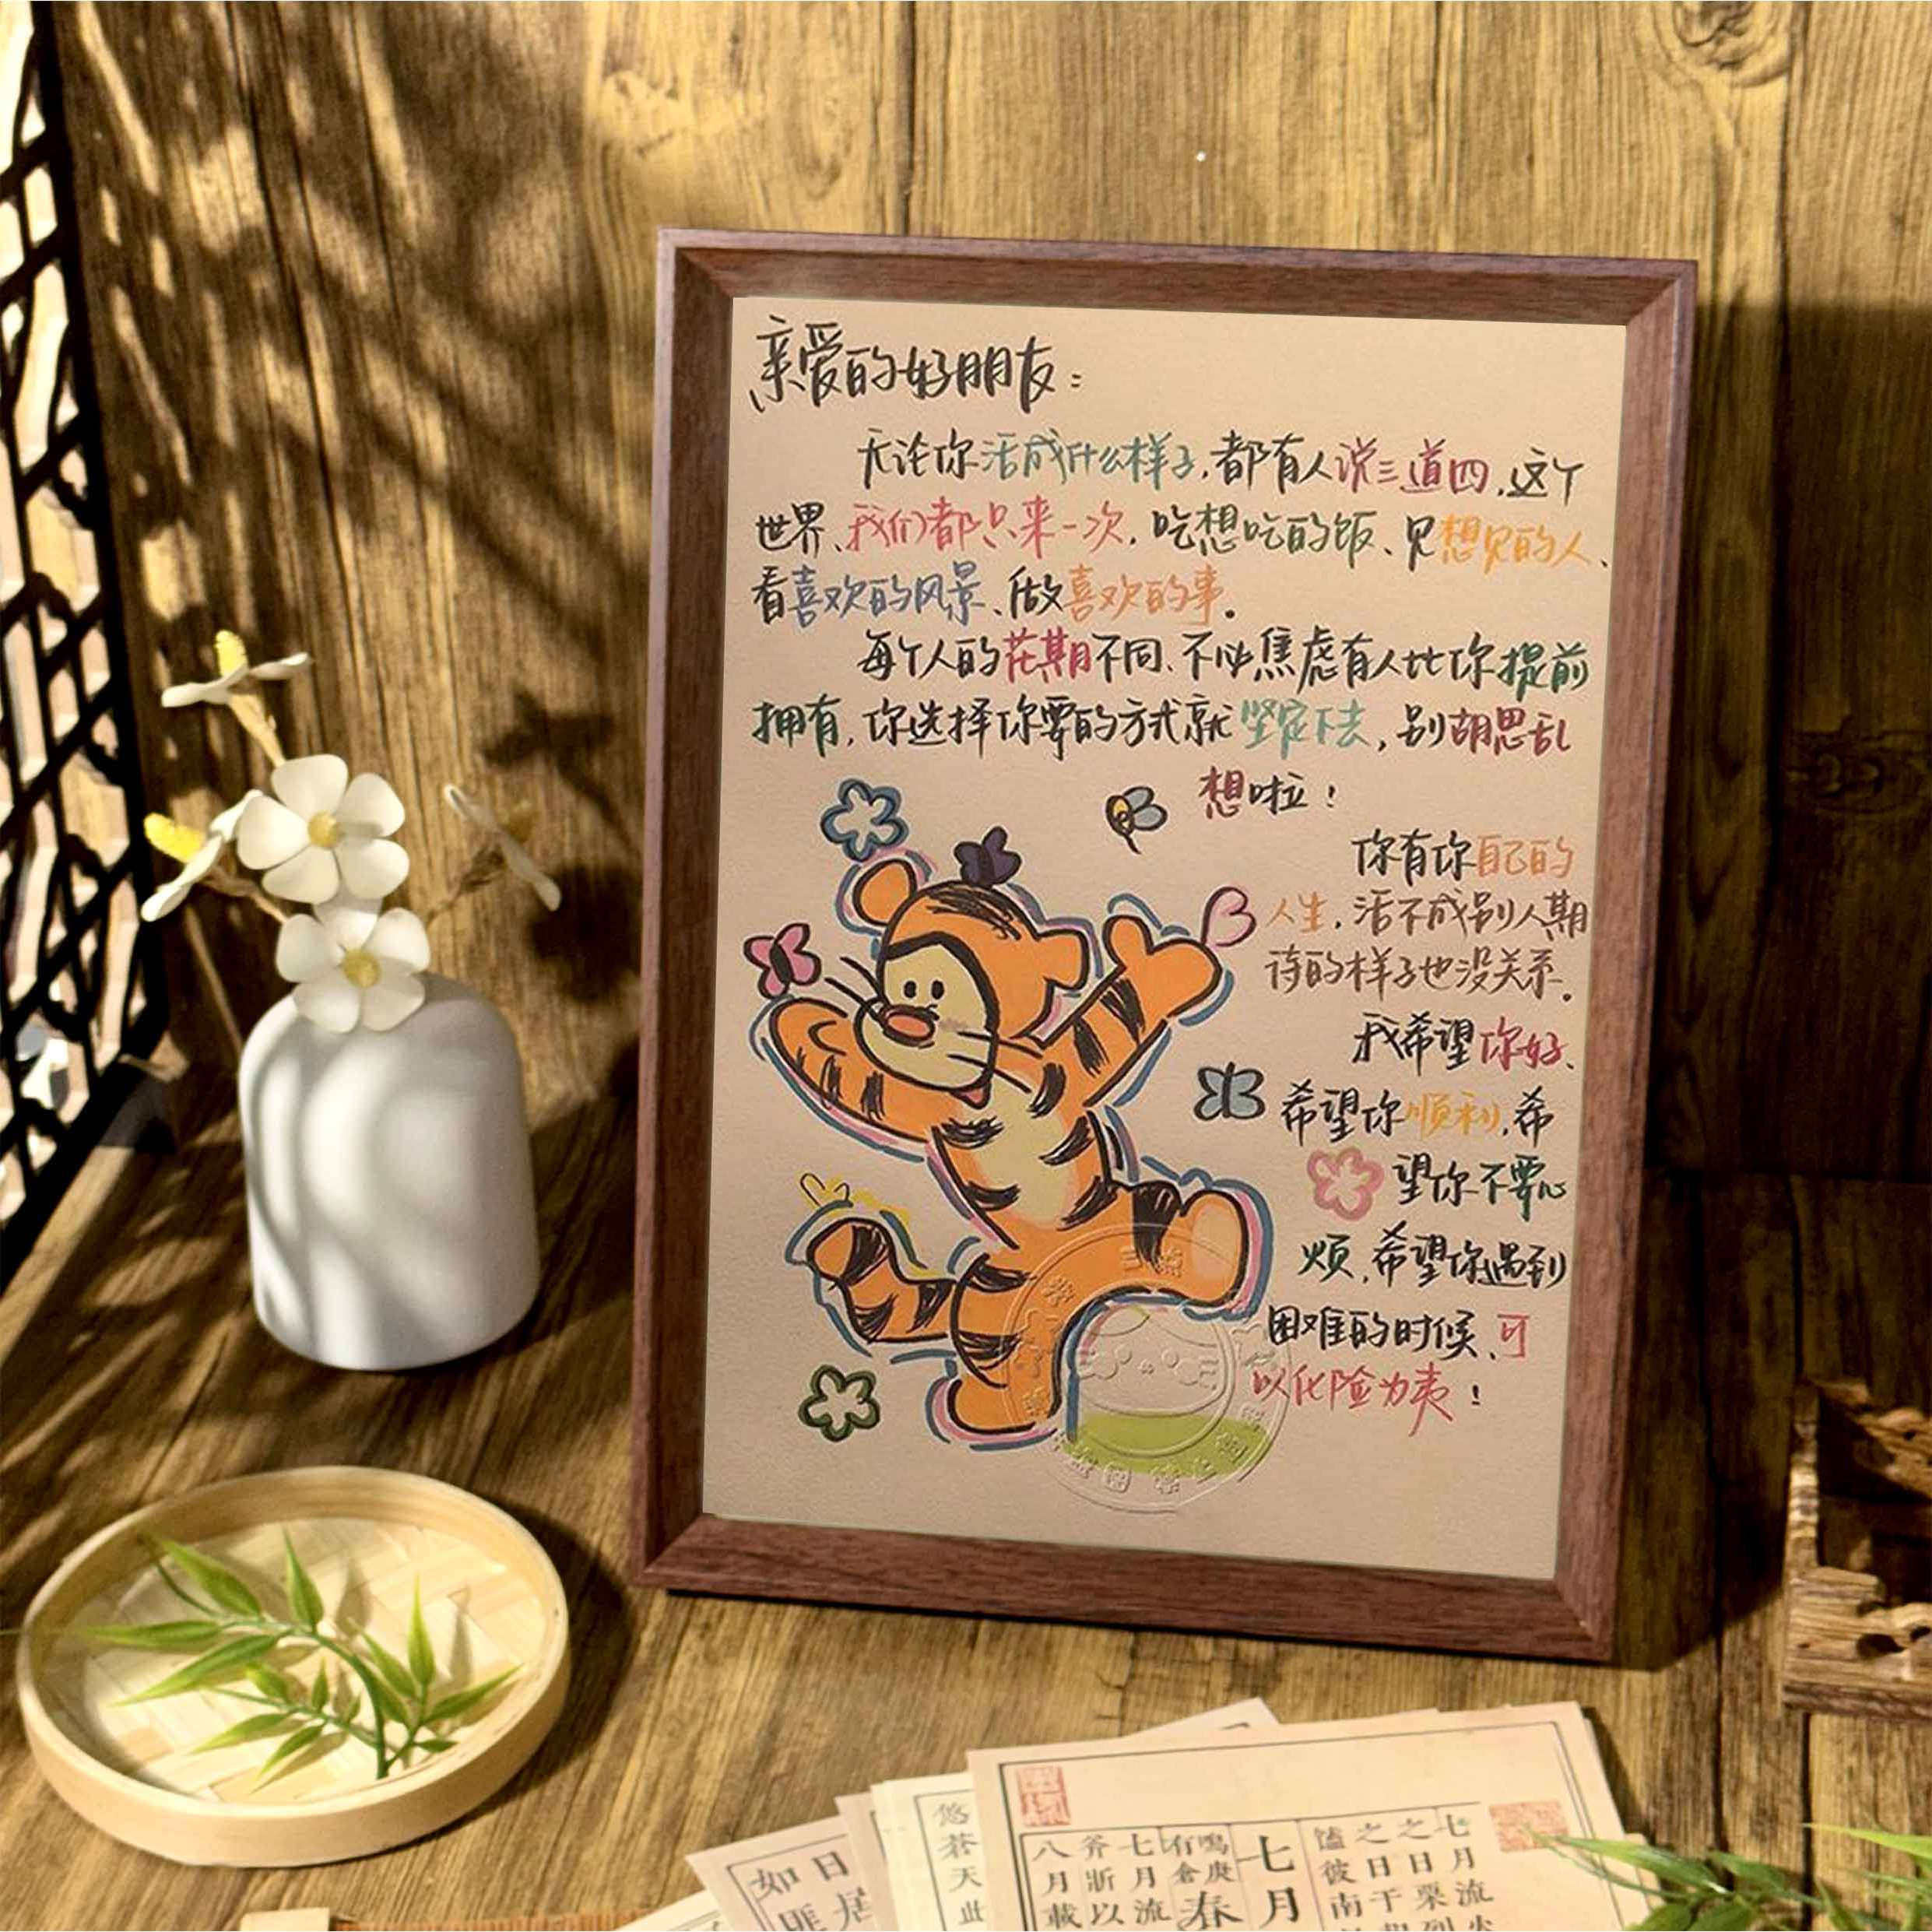 亲爱的好朋友:
无论你活成什么样子,都有人说三道四,这个
世界、我们都只来一次,吃想吃的饭、见想见的人、
看喜欢的风景、做喜欢的事。
每个人的花期不同、不必焦虑有人比你提前
拥有,你选择你要的方式就坚定下去,别胡思乱
想啦!
你有你自己的
人生,活不成别人期
待的样子也没关系。
我希望你好、
希望你顺利,希
望你不要心
烦,希望你遇到
困难的时候、可
以化险为夷!
七月流
之日栗
之日于
馌彼南
七月
鳴庚
有倉
春
七月流
斧斨以
八月載
悠蒼天此
日居
如匪